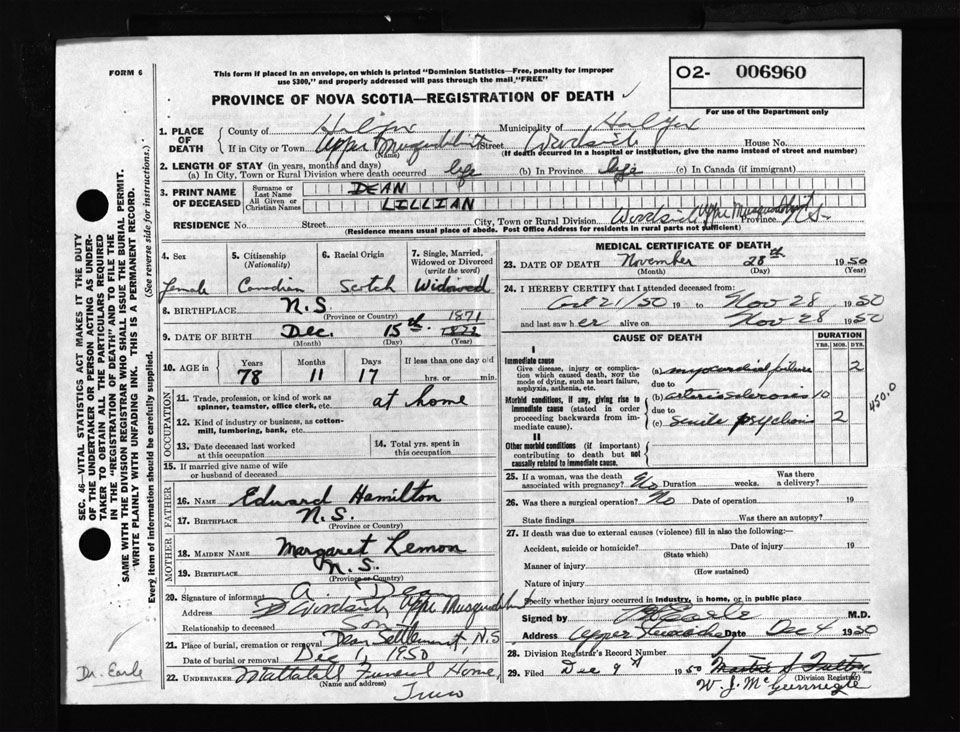 FORM 6
This form if placed in an envelope, on which is printed "Dominion Statistics—Free, penalty for improper
use $300," and properly addressed will pass through the mail "FREE"
O2- 006960
For use of the Department only
PROVINCE OF NOVA SCOTIA—REGISTRATION OF DEATH
1. PLACE OF DEATH { County of Halifax Municipality of Halifax
If in City or Town Upper Musquodoboit Street House No.
(Name) (If death occurred in a hospital or institution, give the name instead of street and number)
2. LENGTH OF STAY (in years, months and days)
(a) In City, Town or Rural Division where death occurred life (b) In Province life (c) In Canada (if immigrant)
3. PRINT NAME OF DECEASED { Surname or Last Name DEAN
All Given or Christian Names LILLIAN
RESIDENCE No. Street City, Town or Rural Division Upper Musquodoboit Province N.S.
(Residence means usual place of abode. Post Office Address for residents in rural parts not sufficient)
4. Sex
female
5. Citizenship
(Nationality)
Canadian
6. Racial Origin
Scotch
7. Single, Married,
Widowed or Divorced
(write the word)
Widowed
8. BIRTHPLACE N.S.
(Province or Country)
1871
9. DATE OF BIRTH Dec. 15th
(Month) (Day) (Year)
10. AGE in { Years Months Days If less than one day old
78 11 17 hrs. or min.
OCCUPATION
11. Trade, profession, or kind of work as
spinner, teamster, office clerk, etc. at home
12. Kind of industry or business, as cotton-
mill, lumbering, bank, etc.
13. Date deceased last worked
at this occupation
14. Total yrs. spent in
this occupation
15. If married give name of wife
or husband of deceased
FATHER
16. NAME Edward Hamilton
17. BIRTHPLACE N.S.
(Province or Country)
MOTHER
18. MAIDEN NAME Margaret Lemon
19. BIRTHPLACE N.S.
(Province or Country)
20. Signature of informant A. Dean
Address Upper Musquodoboit
Relationship to deceased Son
21. Place of burial, cremation or removal Dean Settlement, N.S
Date of burial or removal Dec 1, 1950
22. UNDERTAKER Mattatall Funeral Home,
(Name and address)
Truro
MEDICAL CERTIFICATE OF DEATH
23. DATE OF DEATH November 28th 1950
(Month) (Day) (Year)
24. I HEREBY CERTIFY that I attended deceased from:
21/50 19 to Nov 28 1950
and last saw her alive on Nov 28 1950
CAUSE OF DEATH
DURATION
YRS. MOS. DYS.
I
Immediate cause
Give disease, injury or complica-
tion which caused death, NOT the
mode of dying, such as heart failure,
asphyxia, asthenia, etc.
(a) myocardial failure 2
due to
Morbid conditions, if any, giving rise to
immediate cause (stated in order
proceeding backwards from im-
mediate cause).
(b) arteriosclerosis 10
due to
(c) senile psychosis 2
450.0
II
Other morbid conditions (if important)
contributing to death but not
causally related to immediate cause.
25. If a woman, was the death
associated with pregnancy? No Duration weeks. Was there
a delivery?
26. Was there a surgical operation? No Date of operation 19
State findings Was there an autopsy?
27. If death was due to external causes (violence) fill in also the following:—
Accident, suicide or homicide? Date of injury 19
(State which)
Manner of injury
(How sustained)
Nature of injury
Specify whether injury occurred in industry, in home, or in public place
Signed by Earle M.D.
Address Upper Date Dec 4 1950
28. Division Registrar's Record Number
29. Filed Dec 9th 1950
(Division Registrar)
Dr. Earle
SEC. 46—VITAL STATISTICS ACT MAKES IT THE DUTY
OF THE UNDERTAKER OR PERSON ACTING AS UNDER-
TAKER TO OBTAIN ALL THE PARTICULARS REQUIRED
IN THE "REGISTRATION OF DEATH" AND TO FILE THE
SAME WITH THE DIVISION REGISTRAR WHO SHALL ISSUE THE BURIAL PERMIT.
WRITE PLAINLY WITH UNFADING INK. THIS IS A PERMANENT RECORD.
Every item of information should be carefully supplied. (See reverse side for instructions.)